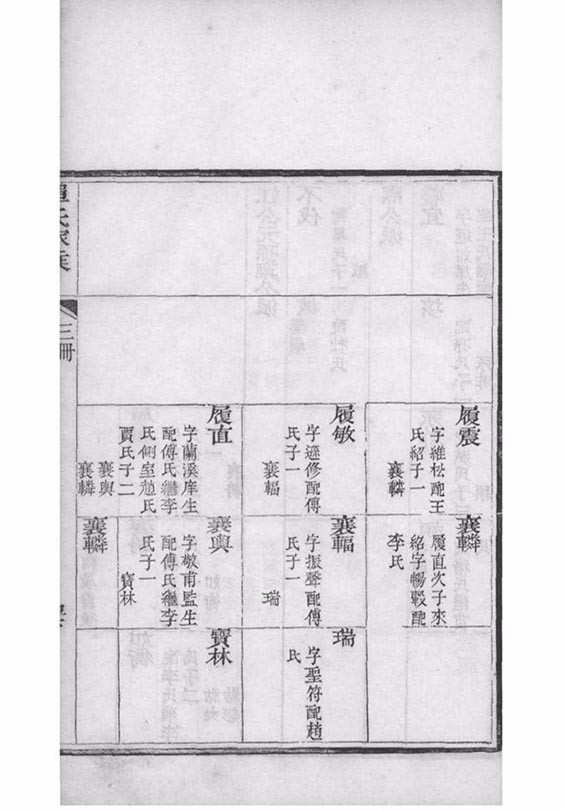 履震
字維松配王
氏紹子一
襄轔
襄轔
履直次子來
紹字暢轂配
李氏
履敏
字遜修配傅
氏子一
襄輻
襄輻
字振聲配傅
氏子一
瑞
瑞
字聖符配趙
氏
履直
字蘭溪庠生
配傅氏繼李
氏側室趙氏
賈氏子二
襄輿
襄轔
襄輿
字敬甫監生
配傅氏繼李
氏子一
寶林
寶林
襄轔
氏家乘
三冊